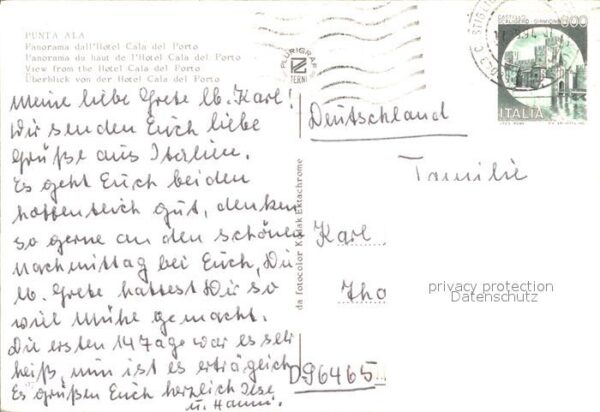 PUNTA ALA
Panorama dall'Hotel Cala del Porto
Panorama du haut de l'Hotel Cala del Porto
View from the Hotel Cala del Porto
Überblick von der Hotel Cala del Porto
Meine liebe Grete lb. Karl!
Wir senden Euch liebe
Grüße aus Italien.
Es geht Euch beiden
hoffentlich gut, denken
so gerne an den schönen
Nachmittag bei Euch, Du
lb. Grete hattest Dir so
viel Mühe gemacht.
Die ersten 14 Tage war es sehr
heiß, nun ist es erträglich
Es grüßen Euch herzlich Ilse
u. Hanni.
PLURIGRAF
TERNI
da fotocolor Kodak Ektachrome
CASTELLO
800
ITALIA
Deutschland
Familie
Karl
Tho
privacy protection
Datenschutz
D96465